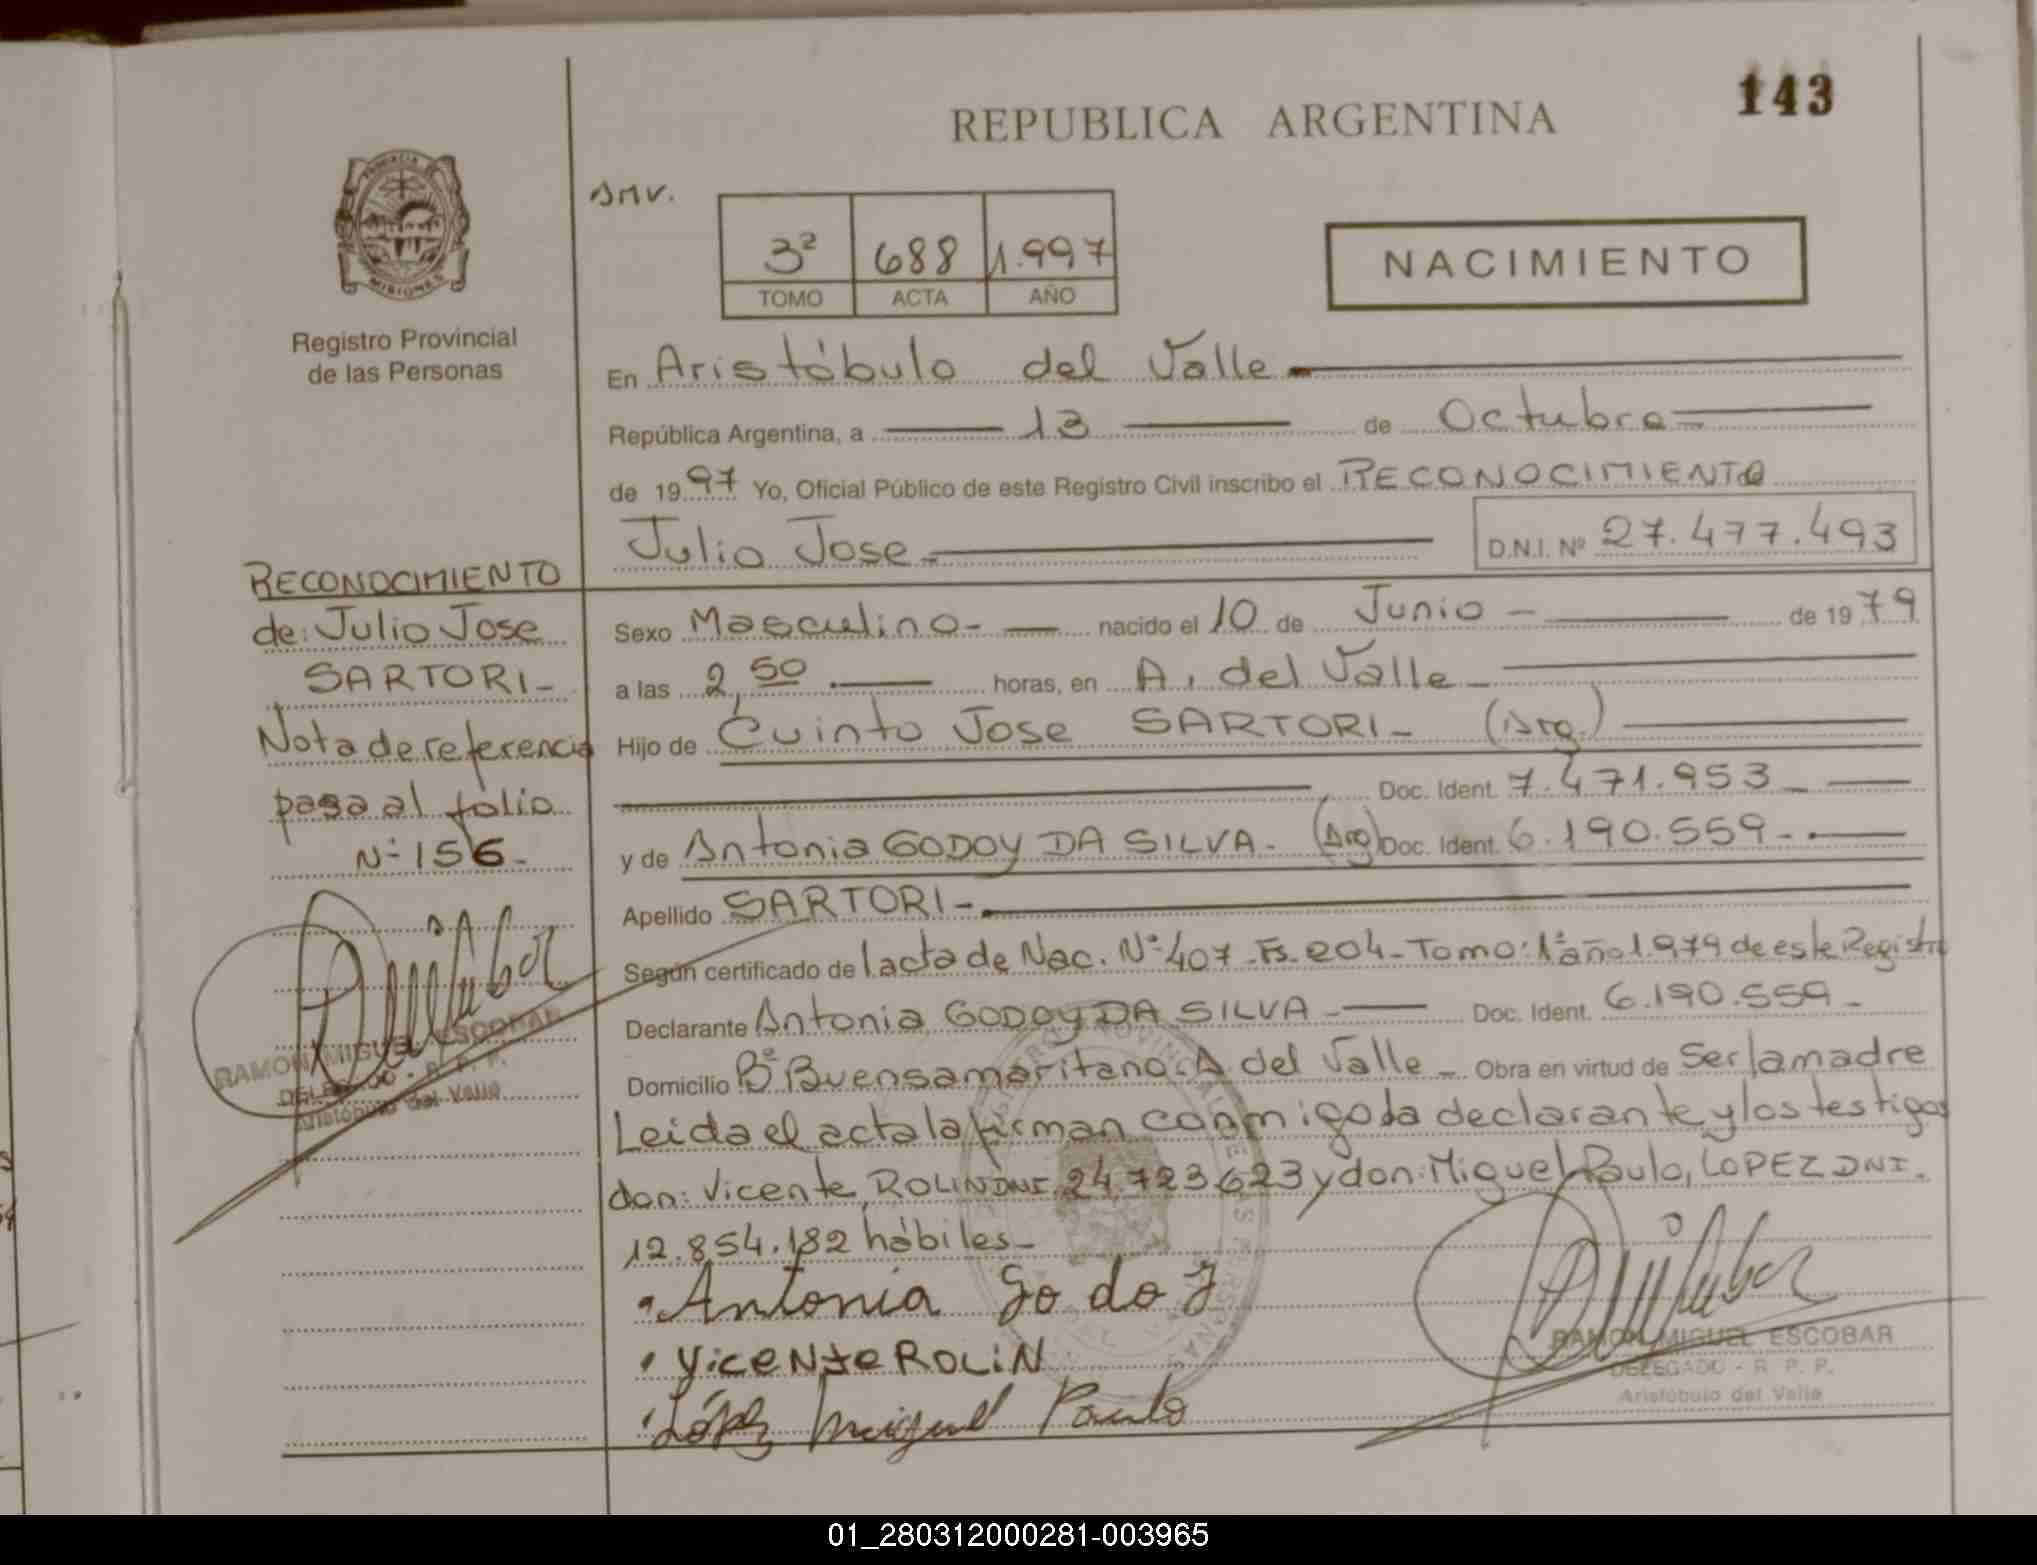 143
REPUBLICA ARGENTINA
PROVINCIA DE
MISIONES
Registro Provincial
de las Personas
AMV.
3º 688 1.997
TOMO ACTA AÑO
NACIMIENTO
En Aristóbulo del Valle
República Argentina, a 13 de Octubre
de 1997 Yo, Oficial Público de este Registro Civil inscribo el RECONOCIMIENTO
Julio Jose D.N.I. Nº 27.477.493
RECONOCIMIENTO
de: Julio Jose
SARTORI-
Nota de referencia
pasa al folio
Nº 156-
RAMON MIGUEL ESCOBAR
DELEGADO - R. P. P.
Aristóbulo del Valle
Sexo Masculino- nacido el 10 de Junio - de 1979
a las 2,50 horas, en A. del Valle-
Hijo de Cuinto Jose SARTORI- (Arg.)
Doc. Ident. 7.471.953-
y de Antonia GODOY DA SILVA- (Arg) Doc. Ident. 6.190.559-
Apellido SARTORI-
Según certificado de l acta de Nac. Nº 407-Fs. 204-Tomo: 1º año 1.979 de este Registro
Declarante Antonia GODOY DA SILVA- Doc. Ident. 6.190.559-
Domicilio Bº Buensamaritano. A del Valle- Obra en virtud de Ser la madre
Leida el acta la firman conmigo la declarante y los testigos
don: Vicente ROLIN DNI. 24.723.623 y don: Miguel Paulo, LOPEZ DNI.
12.854.182 hábiles-
Antonia Godoy
Vicente ROLIN
López Miguel Paulo
RAMON MIGUEL ESCOBAR
DELEGADO - R. P. P.
Aristóbulo del Valle
01_280312000281-003965